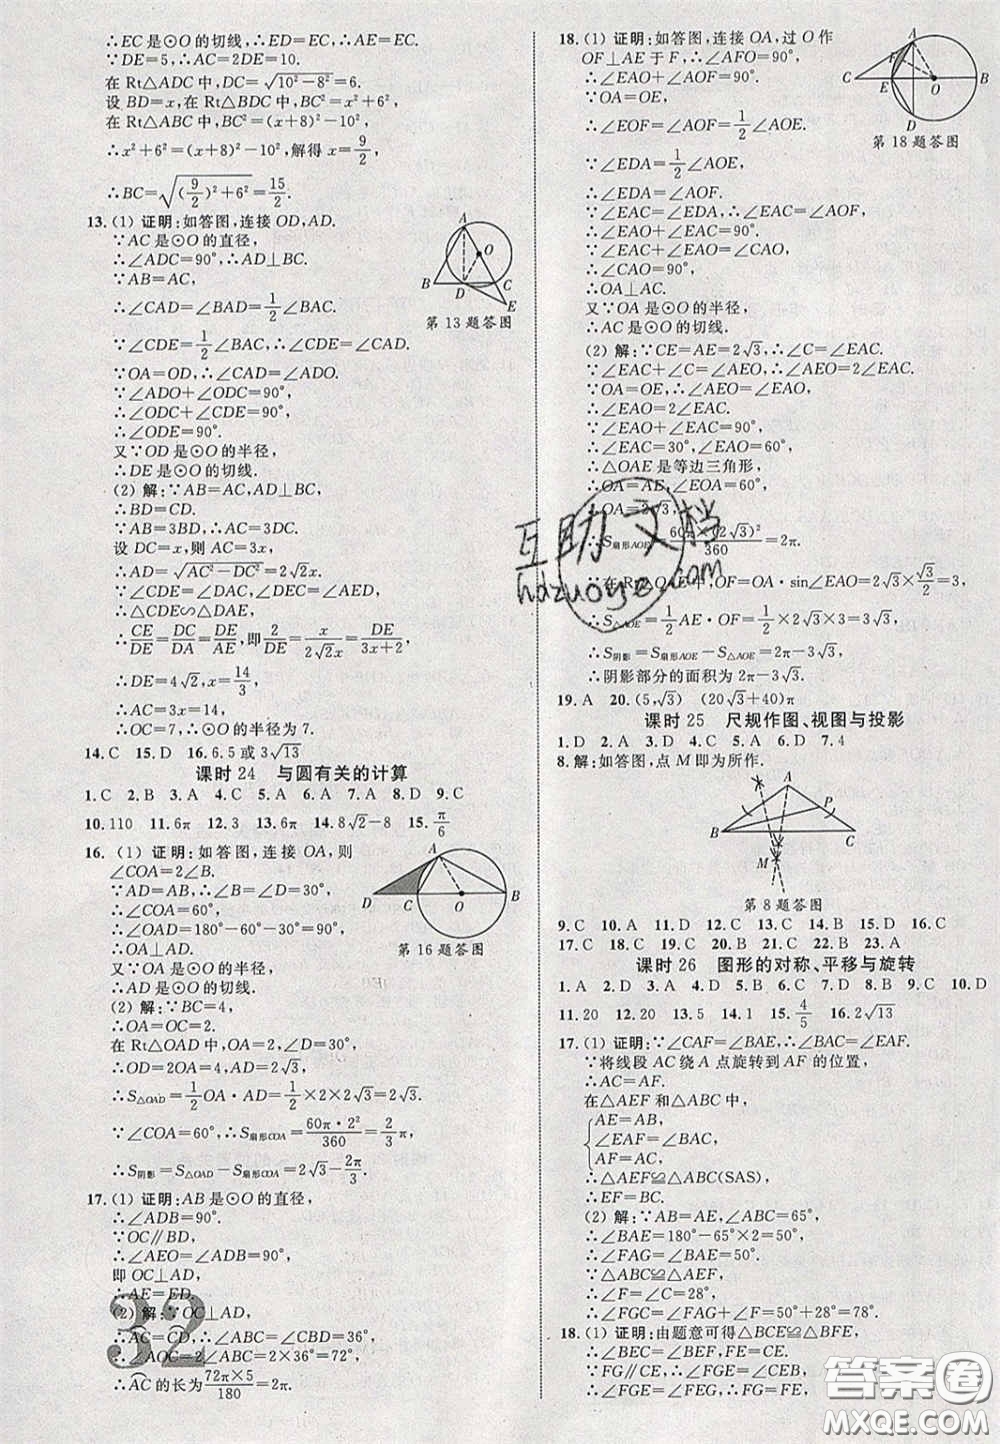 ∴EC是⊙O的切线,∴ED=EC,∴AE=EC.
∵DE=5,∴AC=2DE=10.
在Rt△ADC中,DC=√(10²-8²)=6.
设BD=x,在Rt△BDC中,BC²=x²+6²,
在Rt△ABC中,BC²=(x+8)²-10²,
∴x²+6²=(x+8)²-10²,解得x=9/2,
∴BC=√((9/2)²+6²)=15/2.
13.(1)证明:如答图,连接OD,AD.
∵AC是⊙O的直径,
∴∠ADC=90°,∴AD⊥BC.
∵AB=AC,
∴∠CAD=∠BAD=1/2∠BAC.
∵∠CDE=1/2∠BAC,∴∠CDE=∠CAD.
∵OA=OD,∴∠CAD=∠ADO.
∵∠ADO+∠ODC=90°,
∴∠ODC+∠CDE=90°.
∴∠ODE=90°.
又∵OD是⊙O的半径,
∴DE是⊙O的切线.
(2)解:∵AB=AC,AD⊥BC,
∴BD=CD.
∵AB=3BD,∴AC=3DC.
设DC=x,则AC=3x,
∴AD=√(AC²-DC²)=2√2x.
∵∠CDE=∠CAD,∠DEC=∠AED,
∴△CDE∽△DAE,
∴CE/DE=DC/DA=DE/AE,即2/DE=x/2√2x=DE/3x+2
∴DE=4√2,x=14/3,
∴AC=3x=14,
∴OC=7,∴⊙O的半径为7.
A
O
B
D
C
E
第13题答图
14.C 15.D 16.6.5或3√13
课时24 与圆有关的计算
1.C 2.B 3.A 4.C 5.A 6.A 7.A 8.D 9.C
10.110 11.6π 12.3 13.6π 14.8√2-8 15.π/6
16.(1)证明:如答图,连接OA,则
∠COA=2∠B.
∵AD=AB,∴∠B=∠D=30°,
∴∠COA=60°,
∴∠OAD=180°-60°-30°=90°,
∴OA⊥AD.
又∵OA是⊙O的半径,
∴AD是⊙O的切线.
(2)解:∵BC=4,
∴OA=OC=2.
在Rt△OAD中,OA=2,∠D=30°,
∴OD=2OA=4,AD=2√3,
∴S△OAD=1/2OA·AD=1/2×2×2√3=2√3.
∵∠COA=60°,∴S扇形COA=60π·2²/360=2/3π,
∴S阴影=S△OAD-S扇形COA=2√3-2π/3.
A
D
C
O
B
第16题答图
17.(1)证明:∵AB是⊙O的直径,
∴∠ADB=90°.
∵OC∥BD,
∴∠AEO=∠ADB=90°,
即OC⊥AD,
∴AE=ED.
(2)解:∵OC⊥AD,
∴AC=CD,∴∠ABC=∠CBD=36°,
∴∠AOC=2∠ABC=2×36°=72°,
∴AC的长为72π×5/180=2π.
32
18.(1)证明:如答图,连接OA,过O作
OF⊥AE于F,∴∠AFO=90°,
∴∠EAO+∠AOF=90°.
∵OA=OE,
∴∠EOF=∠AOF=1/2∠AOE.
∵∠EDA=1/2∠AOE,
∴∠EDA=∠AOF.
∵∠EAC=∠EDA,∴∠EAC=∠AOF,
∴∠EAO+∠EAC=90°.
∵∠EAC+∠EAO=∠CAO,
∴∠CAO=90°,
∴OA⊥AC.
又∵OA是⊙O的半径,
∴AC是⊙O的切线.
A
F
C
E
O
B
D
第18题答图
(2)解:∵CE=AE=2√3,∴∠C=∠EAC.
∵∠EAC+∠C=∠AEO,∴∠AEO=2∠EAC.
∵OA=OE,∴∠AEO=∠EAO,
∴∠EAO=2∠EAC.
∵∠EAO+∠EAC=90°,
∴∠EAC=30°,∠EAO=60°,
∴△OAE是等边三角形,
∴OA=AE,∠EOA=60°,
∴OA=2√3,
∴S扇形AOE=60π×(2√3)²/360=2π.
∵在Rt△OAE中,OF=OA·sin∠EAO=2√3×√3/2=3,
∴S△AOE=1/2AE·OF=1/2×2√3×3=3√3,
∴S阴影=S扇形AOE-S△AOE=2π-3√3,
∴阴影部分的面积为2π-3√3.
19.A 20.(5,√3) (20√3+40)π
课时25 尺规作图、视图与投影
1.D 2.A 3.D 4.C 5.A 6.D 7.4
8.解:如答图,点M即为所作.
A
P
B
C
M
第8题答图
9.C 10.A 11.D 12.D 13.C 14.B 15.D 16.C
17.C 18.C 19.C 20.B 21.C 22.B 23.A
课时26 图形的对称、平移与旋转
1.A 2.D 3.A 4.D 5.A 6.D 7.B 8.C 9.C 10.D
11.20 12.20 13.5 14.1 15.4/5 16.2√13
17.(1)证明:∵∠CAF=∠BAE,∴∠BAC=∠EAF.
∵将线段AC绕A点旋转到AF的位置,
∴AC=AF.
在△AEF和△ABC中,
AE=AB,
∠EAF=∠BAC,
AF=AC,
∴△AEF≌△ABC(SAS),
∴EF=BC.
(2)解:∵AB=AE,∠ABC=65°,
∴∠BAE=180°-65°×2=50°,
∴∠FAG=∠BAE=50°.
∵△ABC≌△AEF,
∴∠F=∠C=28°,
∴∠FGC=∠FAG+∠F=50°+28°=78°.
18.(1)证明:由题意可得△BCE≌△BFE,
∴∠BEC=∠BEF,FE=CE.
∵FG∥CE,∴∠FGE=∠CEB,
∴∠FGE=∠FEG,∴FG=FE,
互助文档
huzuoye.com
答案圈
MXQE.COM